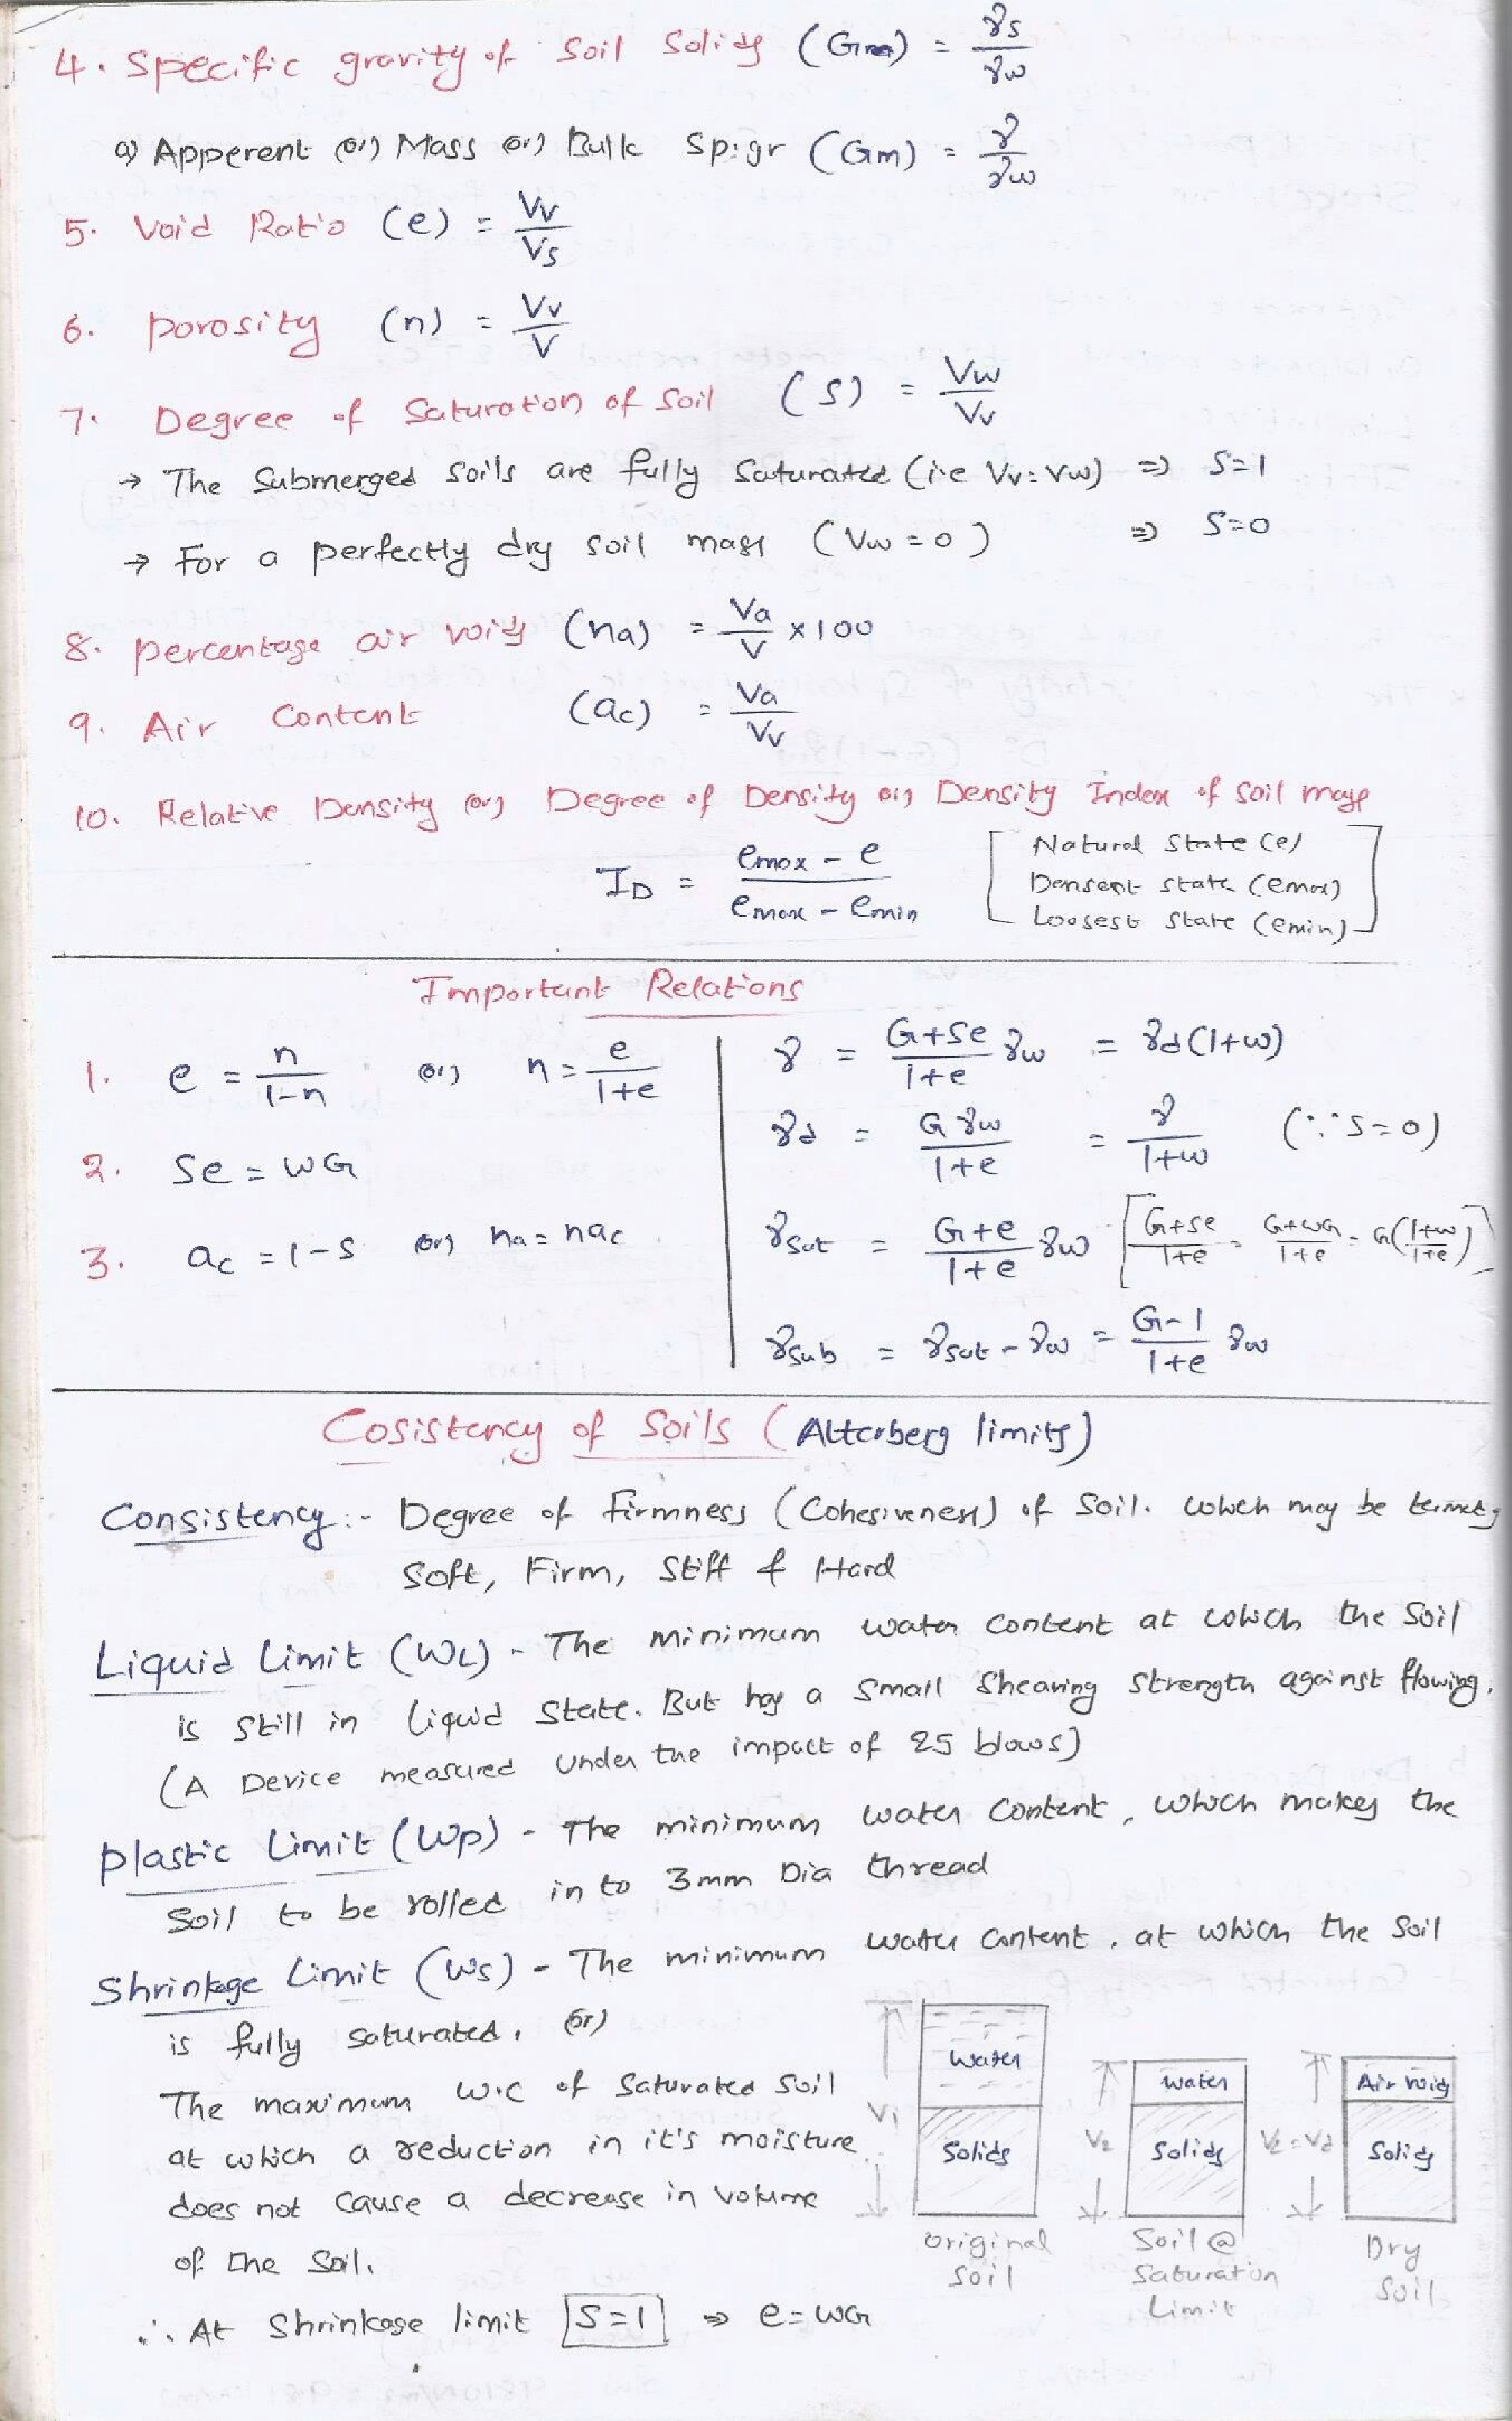 4. Specific gravity of Soil Solids (Gm) = γs/γw
a) Apperent (or) Mass (or) Bulk Sp.gr (Gm) = γ/γw
5. Void Ratio (e) = Vv/Vs
6. porosity (n) = Vv/V
7. Degree of Saturation of Soil (S) = Vw/Vv
→ The Submerged Soils are fully Saturated (i.e Vv = Vw) ⇒ S=1
→ For a perfectly dry soil mass (Vw = 0) ⇒ S=0
8. percentage air voids (na) = Va/V × 100
9. Air Content (ac) = Va/Vv
10. Relative Density (or) Degree of Density (or) Density Index of Soil mass
ID = (emax - e)/(emax - emin) [Natural State (e)
Densest state (emax)
Loosest State (emin)]
Important Relations
1. e = n/(1-n) (or) n = e/(1+e)
2. Se = wG
3. ac = 1-S (or) na = nac
γ = (G+Se)/(1+e) γw = γd(1+w)
γd = Gγw/(1+e) = γ/(1+w) (∵ S=0)
γsat = (G+e)/(1+e) γw [(G+Se)/(1+e) = (G+wG)/(1+e) = G((1+w)/(1+e))]
γsub = γsat - γw = (G-1)/(1+e) γw
Cosistency of Soils (Atterberg limits)
Consistency :- Degree of Firmness (Cohesiveness) of Soil. which may be termed
Soft, Firm, Stiff & Hard
Liquid Limit (WL) - The minimum water content at which the Soil
is Still in liquid State. But has a Small Shearing Strength against flowing.
(A Device measured under the impact of 25 blows)
Plastic Limit (Wp) - The minimum water content, which makes the
Soil to be rolled in to 3mm Dia thread
Shrinkage Limit (Ws) - The minimum water content, at which the Soil
is fully saturated. (or)
The maximum w.c of Saturated Soil
at which a reduction in it's moisture
does not cause a decrease in volume
of the Soil.
∴ At Shrinkage limit S=1 ⇒ e = wG
V1
Water
Solids
Original
Soil
V2
Water
Solids
Soil @
Saturation
Limit
V2 = Vd
Air voids
Solids
Dry
Soil